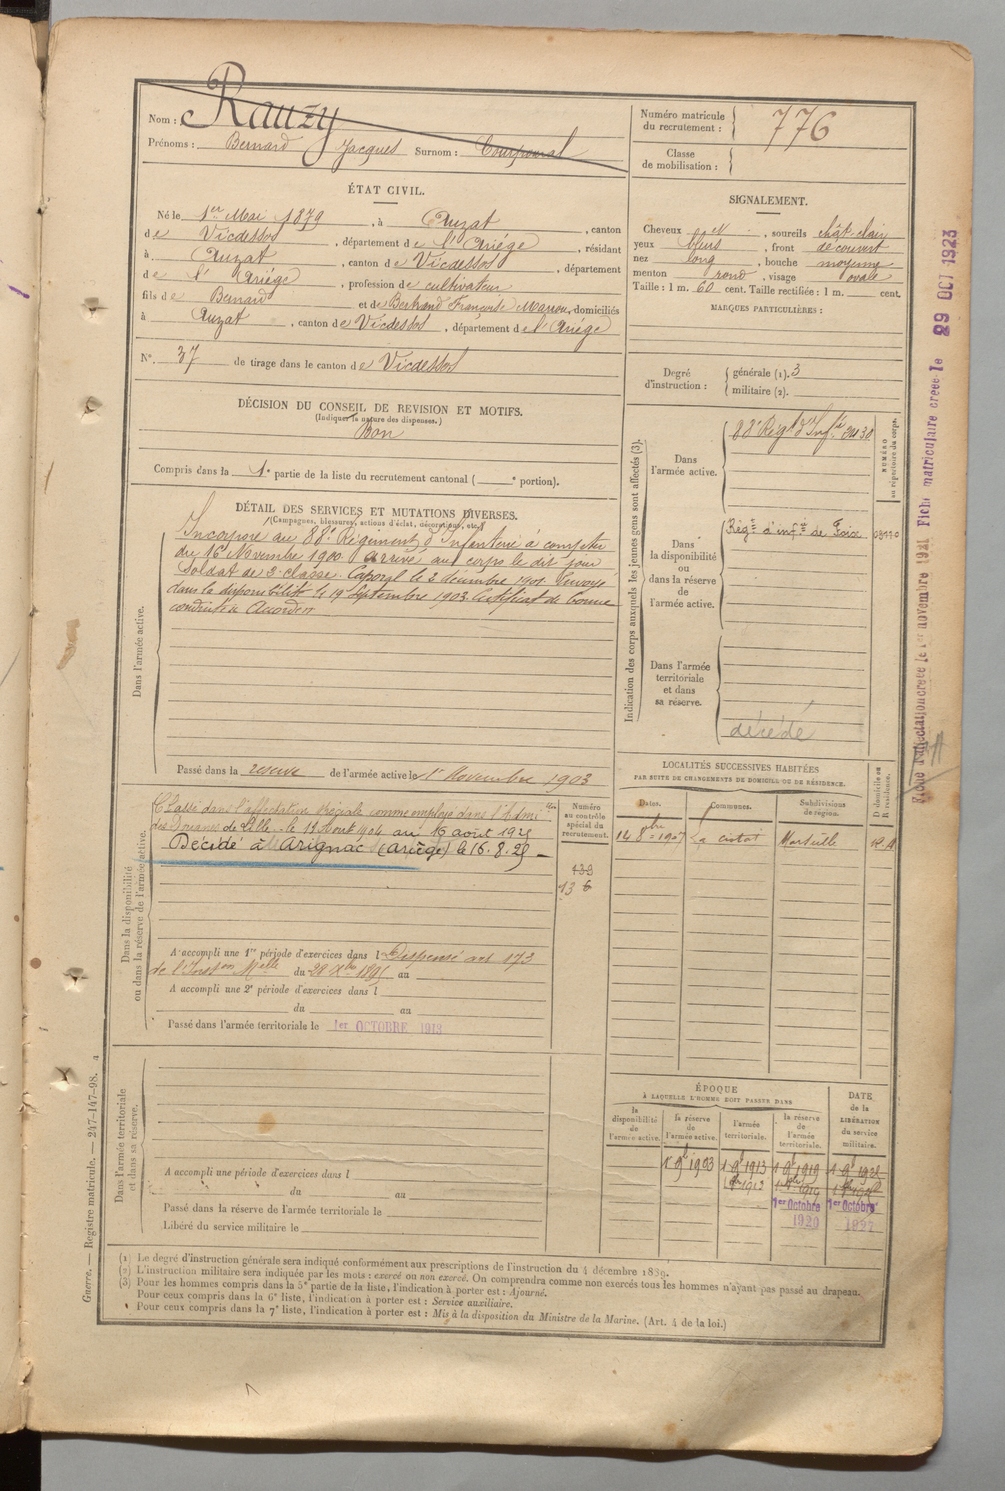 Nom : Rauzy
Prénoms : Bernard Jacques Surnom :
Numéro matricule du recrutement : 776
Classe de mobilisation :
ÉTAT CIVIL.
Né le 1er Mai 1879, à Auzat, canton
de Vicdessos, département de l'Ariége, résidant
à Auzat, canton de Vicdessos, département
de l'Ariége, profession de cultivateur
fils de Bernard et de Bertrand Françoise Marion, domiciliés
à Auzat, canton de Vicdessos, département de l'Ariége
N° 37 de tirage dans le canton de Vicdessos
SIGNALEMENT.
Cheveux, sourcils chât clair
yeux bleus, front découvert
nez long, bouche moyenne
menton rond, visage ovale
Taille : 1 m. 60 cent. Taille rectifiée : 1 m. cent.
MARQUES PARTICULIÈRES :
Degré d'instruction : générale (1). 3
militaire (2).
DÉCISION DU CONSEIL DE REVISION ET MOTIFS.
(Indiquer la nature des dispenses.)
Bon
Compris dans la 1e partie de la liste du recrutement cantonal ( e portion).
DÉTAIL DES SERVICES ET MUTATIONS DIVERSES.
(Campagnes, blessures, actions d'éclat, décorations, etc.)
Dans l'armée active.
Incorporé au 88e Régiment d'Infanterie à compter
du 16 Novembre 1900. Arrivé au corps le dit jour
Soldat de 2e classe. Caporal le 2 décembre 1901. Envoyé
dans la disponibilité le 19 Septembre 1903. Certificat de bonne
conduite Accordé
Passé dans la reserve de l'armée active le 1er Novembre 1903
Indication des corps auxquels les jeunes gens sont affectés (3).
NUMÉRO au répertoire du corps.
Dans l'armée active.
88e Régt d'Infie
Dans la disponibilité ou dans la réserve de l'armée active.
Régt d'infie de Foix
Dans l'armée territoriale et dans sa réserve.
décédé
Dans la disponibilité ou dans la réserve de l'armée active.
Classé dans l'affectation spéciale comme employé dans l'Admion
des Douanes de Lille le 13 Aout 1904 au 16 août 1925
Décédé à Arignac (Ariège) le 16.8.25
Numéro au contrôle spécial du recrutement.
139
136
A accompli une 1re période d'exercices dans l Dispensé art 173
de l'Inston Melle du 28 Xbre 1895 au
A accompli une 2e période d'exercices dans l
du au
Passé dans l'armée territoriale le 1er OCTOBRE 1913
LOCALITÉS SUCCESSIVES HABITÉES
PAR SUITE DE CHANGEMENTS DE DOMICILE OU DE RÉSIDENCE.
Dates. Communes. Subdivisions de région. D domicile ou R résidence.
14 8bre 1907 La ciotat Marseille
Dans l'armée territoriale et dans sa réserve.
A accompli une période d'exercices dans l
du au
Passé dans la réserve de l'armée territoriale le
Libéré du service militaire le
ÉPOQUE
À LAQUELLE L'HOMME DOIT PASSER DANS
la disponibilité de l'armée active. la réserve de l'armée active. l'armée territoriale. la réserve de l'armée territoriale. DATE de la LIBÉRATION du service militaire.
1er 9bre 1903 1er 9bre 1913 1er 9bre 1919
1er Octobre 1920 1er Octobre
(1) Le degré d'instruction générale sera indiqué conformément aux prescriptions de l'instruction du 4 décembre 1889.
(2) L'instruction militaire sera indiquée par les mots : exercé ou non exercé. On comprendra comme non exercés tous les hommes n'ayant pas passé au drapeau.
(3) Pour les hommes compris dans la 5e partie de la liste, l'indication à porter est : Ajourné.
Pour ceux compris dans la 6e liste, l'indication à porter est : Service auxiliaire.
Pour ceux compris dans la 7e liste, l'indication à porter est : Mis à la disposition du Ministre de la Marine. (Art. 4 de la loi.)
Guerre. — Registre matricule. — 247-147-98.
Fiche d'affectation créée le 1er novembre 1921 Fiche matriculaire créée le 29 OCT 1923